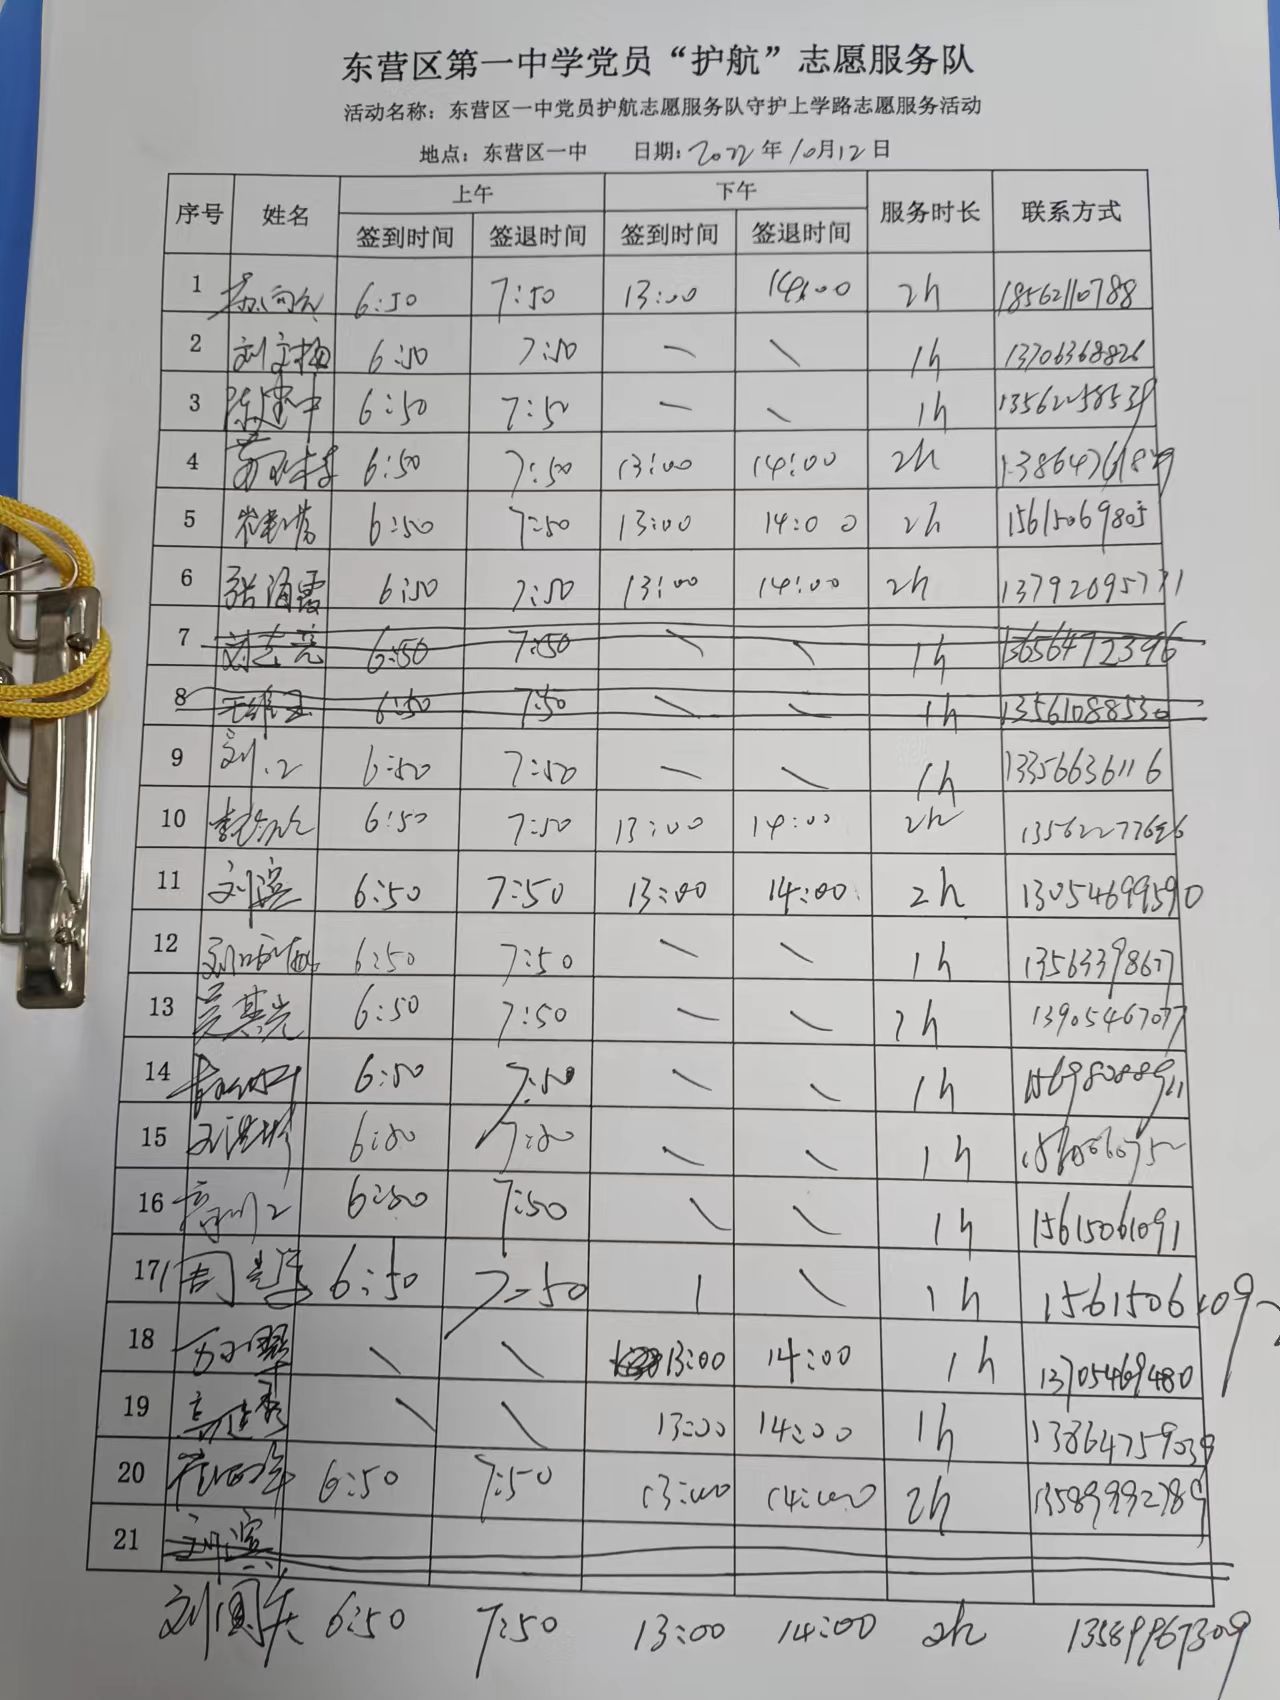 东营区第一中学党员“护航”志愿服务队
活动名称：东营区一中党员护航志愿服务队守护上学路志愿服务活动
地点：东营区一中 日期：2022年10月12日
序号 姓名 上午 下午 服务时长 联系方式
签到时间 签退时间 签到时间 签退时间
1 6:50 7:50 13:00 14:00 2h 18562110788
2 刘文梅 6:50 7:50 — — 1h 13706368826
3 陈建中 6:50 7:50 — — 1h 13562258539
4 6:50 7:50 13:00 14:00 2h
5 6:50 7:50 13:00 14:00 2h 15615069805
6 张海霞 6:50 7:50 13:00 14:00 2h 13792095771
7 6:50 7:50 — — 1h 13656472396
8 6:50 7:50 — — 1h 13561088530
9 6:50 7:50 — — 1h 13356636116
10 6:50 7:50 13:00 14:00 2h 13562277696
11 刘滨 6:50 7:50 13:00 14:00 2h 13054699590
12 6:50 7:50 — — 1h 13563398677
13 6:50 7:50 — — 2h 13905467077
14 6:50 7:50 — — 1h 15698088911
15 6:50 7:50 — — 1h
16 6:50 7:50 — — 1h 15615061091
17 周 6:50 7:50 — — 1h 1561506109
18 — — 13:00 14:00 1h 13705469480
19 — — 13:00 14:00 1h 13864759039
20 6:50 7:50 13:00 14:00 2h 13589992789
21 刘滨
刘国庆 6:50 7:50 13:00 14:00 2h 13589967309